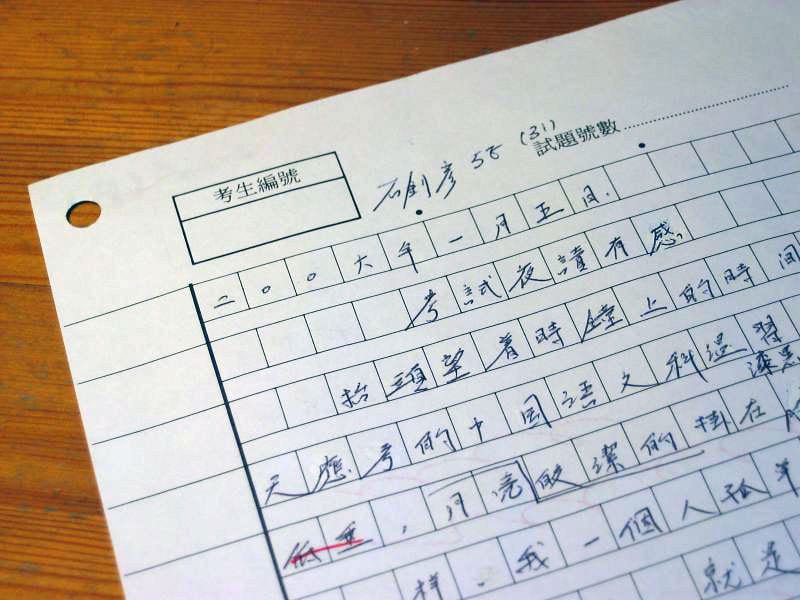 試題號數
(31)
考生編號
石劍彥 5E
二〇〇六年一月五日.
考試夜讀有感
抬頭望着時鐘上的時間
天應考的中国語文科温習
漆黑
低垂,月亮皎潔的掛在
样,我一個人孤單
就是